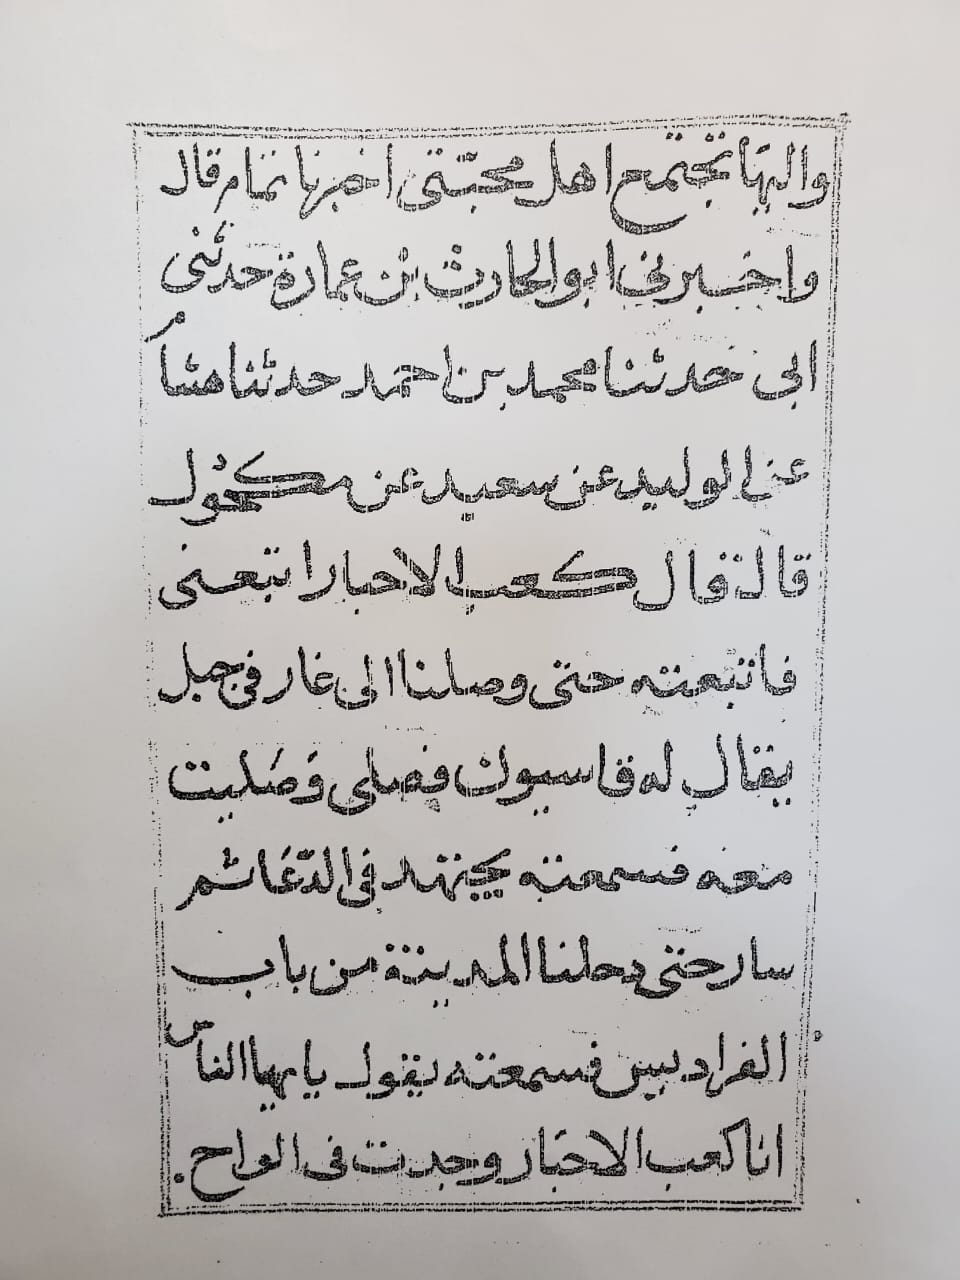 واليها تجتمع اهل محبتي اخبرنا تمام قال
واخبرني ابو الحارث بن عمارة حدثني
ابي حدثنا محمد بن احمد حدثنا هشام
عن الوليد عن سعيد عن مكحول
قال قال كعب الاحبار اتبعني
فاتبعته حتى وصلنا الى غار في جبل
يقال له قاسيون فصلى وصليت
معه فسمعته يجتهد في الدعا ثم
سار حتى دخلنا المدينة من باب
الفراديس فسمعته يقول يايها الناس
انا كعب الاحبار وجدت في الواح